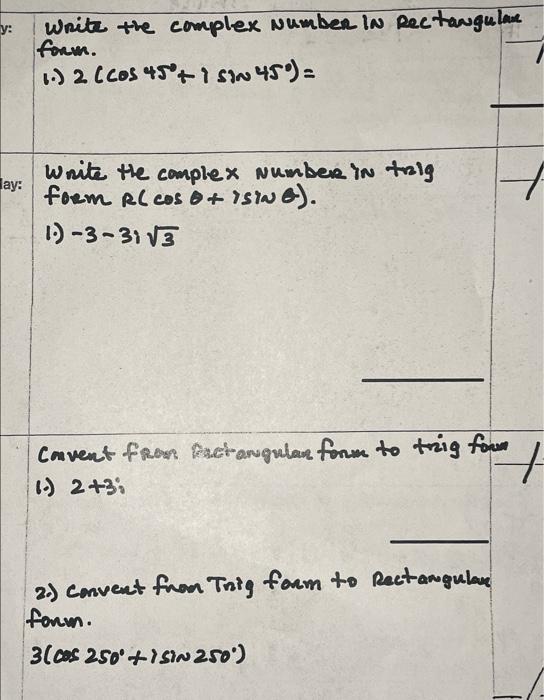 y:
Write the complex number in Rectangular
form.
1.) 2 (cos 45° + i sin 45°) =
lay:
Write the complex number in trig
form R( cos θ + i sin θ).
1.) -3 - 3i √3
Convert from Rectangular form to trig form
1.) 2 + 3i
2.) Convert from Trig form to Rectangular
form.
3(cos 250° + i sin 250°)